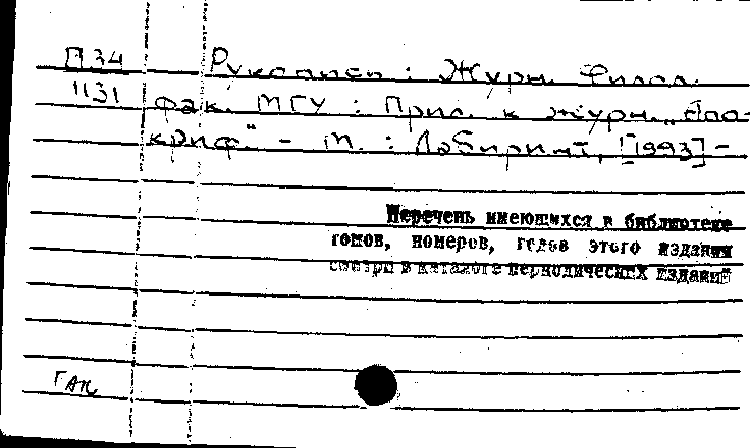 П34 Рукопись : Журн. Филол.
1131 фак. МГУ : Прил. к журн. „Апо-
криф." - М. : Лабиринт, [1993] -
Перечень имеющихся в библиотеке
томов, номеров, годов этого издания
смотри в каталоге периодических изданий
ГАК